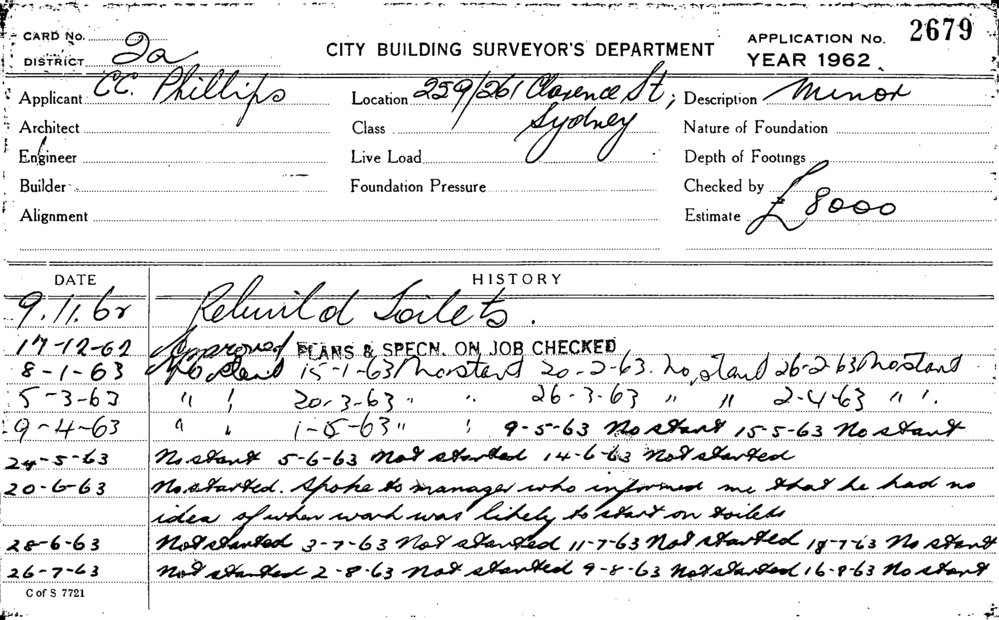 CARD No.
DISTRICT 2a
CITY BUILDING SURVEYOR'S DEPARTMENT
APPLICATION No. 2679
YEAR 1962
Applicant C.C. Phillips
Location 259/261 Clarence St, Sydney
Description Minor
Architect
Class
Nature of Foundation
Engineer
Live Load
Depth of Footings
Builder
Foundation Pressure
Checked by
Alignment
Estimate £8000
DATE HISTORY
9.11.62 Rebuild Toilets.
17-12-62 Approved PLANS & SPECN. ON JOB CHECKED
8-1-63 No start 15-1-63 No start 20-2-63. No start 26-2-63 No start
5-3-63 " " 20-3-63 " " 26-3-63 " " 2-4-63 " ".
9-4-63 " " 1-5-63 " " 9-5-63 No start 15-5-63 No start
24-5-63 No start 5-6-63 Not started 14-6-63 Not started
20-6-63 No started. Spoke to manager who informed me that he had no
idea of when work was likely to start on toilets
28-6-63 Not started 3-7-63 Not started 11-7-63 Not started 18-7-63 No start
26-7-63 Not started 2-8-63 Not started 9-8-63 Not started 16-8-63 No start
C of S 7721